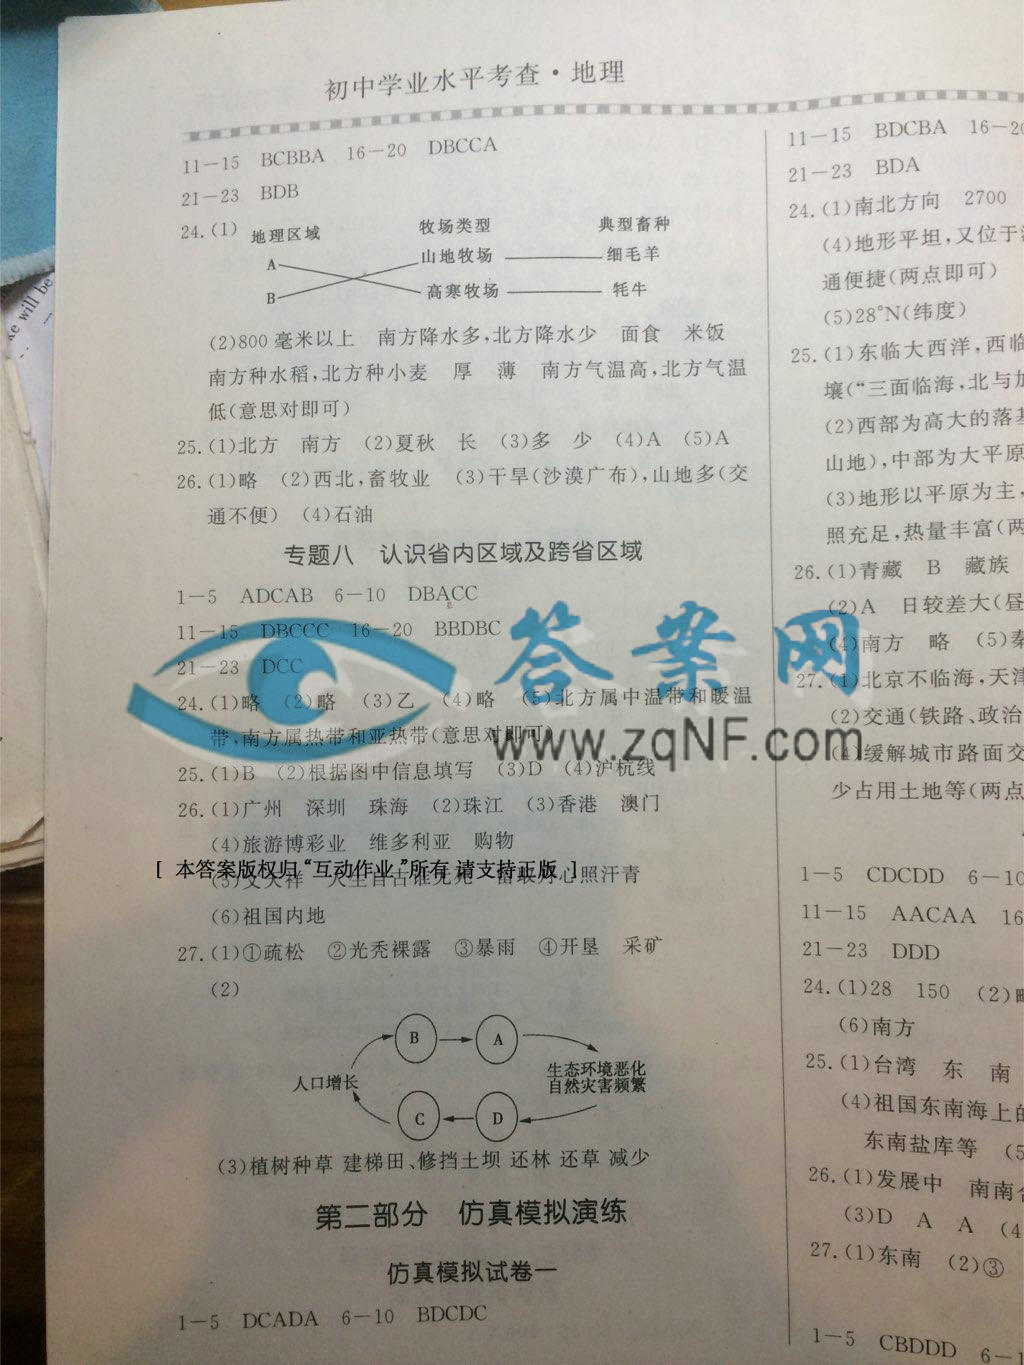 初中学业水平考查·地理
11—15 BCBBA 16—20 DBCCA
21—23 BDB
24.(1) 地理区域 牧场类型 典型畜种
A 山地牧场 细毛羊
B 高寒牧场 牦牛
(2)800毫米以上 南方降水多,北方降水少 面食 米饭
南方种水稻,北方种小麦 厚 薄 南方气温高,北方气温
低(意思对即可)
25.(1)北方 南方 (2)夏秋 长 (3)多 少 (4)A (5)A
26.(1)略 (2)西北,畜牧业 (3)干旱(沙漠广布),山地多(交
通不便) (4)石油
专题八 认识省内区域及跨省区域
1—5 ADCAB 6—10 DBACC
11—15 DBCCC 16—20 BBDBC
21—23 DCC
24.(1)略 (2)略 (3)乙 (4)略 (5)北方属中温带和暖温
带,南方属热带和亚热带(意思对即可)
25.(1)B (2)根据图中信息填写 (3)D (4)沪杭线
26.(1)广州 深圳 珠海 (2)珠江 (3)香港 澳门
(4)旅游博彩业 维多利亚 购物
[ 本答案版权归“互动作业”所有 请支持正版 ]
(5)文天祥 人生自古谁无死 留取丹心照汗青
(6)祖国内地
27.(1)①疏松 ②光秃裸露 ③暴雨 ④开垦 采矿
(2)
B A
人口增长 生态环境恶化
自然灾害频繁
C D
(3)植树种草 建梯田、修挡土坝 还林 还草 减少
第二部分 仿真模拟演练
仿真模拟试卷一
1—5 DCADA 6—10 BDCDC
11—15 BDCBA 16—20
21—23 BDA
24.(1)南北方向 2700
(4)地形平坦,又位于
通便捷(两点即可)
(5)28°N(纬度)
25.(1)东临大西洋,西临
壤(“三面临海,北与加
(2)西部为高大的落基
山地),中部为大平原
(3)地形以平原为主,
照充足,热量丰富(两
26.(1)青藏 B 藏族
(2)A 日较差大(昼
(4)南方 略 (5)秦
27.(1)北京不临海,天津
(2)交通(铁路、政治
(4)缓解城市路面交
少占用土地等(两点
1—5 CDCDD 6—10
11—15 AACAA 16
21—23 DDD
24.(1)28 150 (2)略
(6)南方
25.(1)台湾 东 南
(4)祖国东南海上的
东南盐库等 (5
26.(1)发展中 南南合
(3)D A A (4
27.(1)东南 (2)③
1—5 CBDDD 6—1
答案网
www.zqNF.com
ke will be